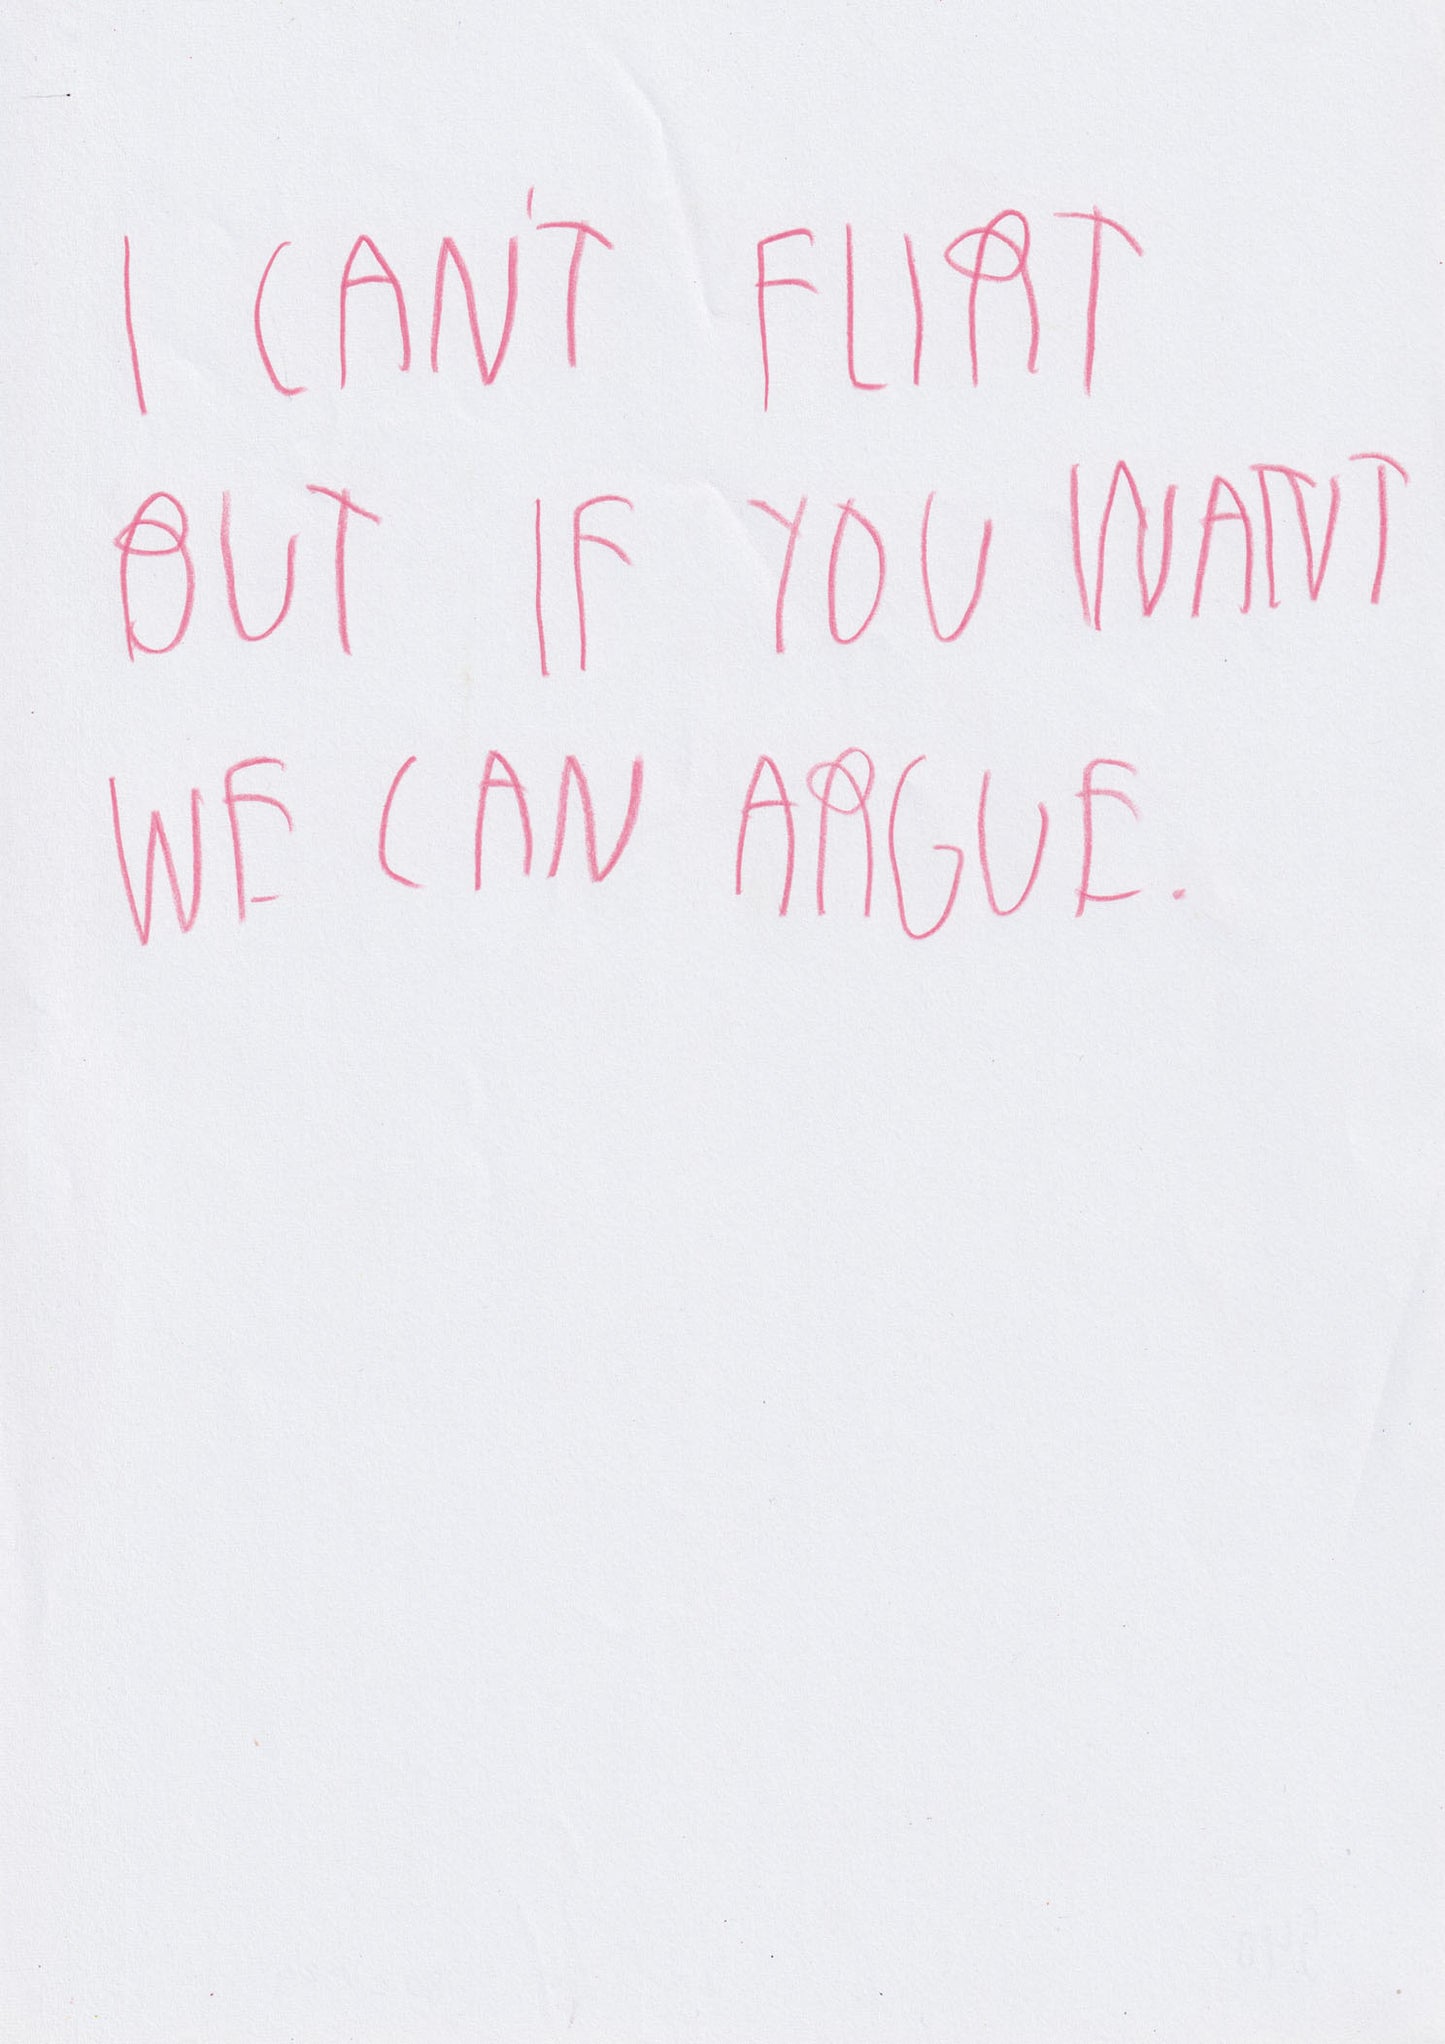 I CAN'T FLIRT
BUT IF YOU WANT
WE CAN ARGUE.